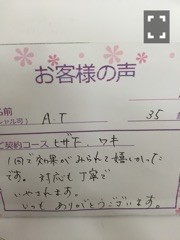 お客様の声
名前
A.T
35
ご契約コース ヒザ下、ワキ
1回で効果がみられて嬉しかった
です。対応も丁寧で
いやされます。
いつもありがとうございます。